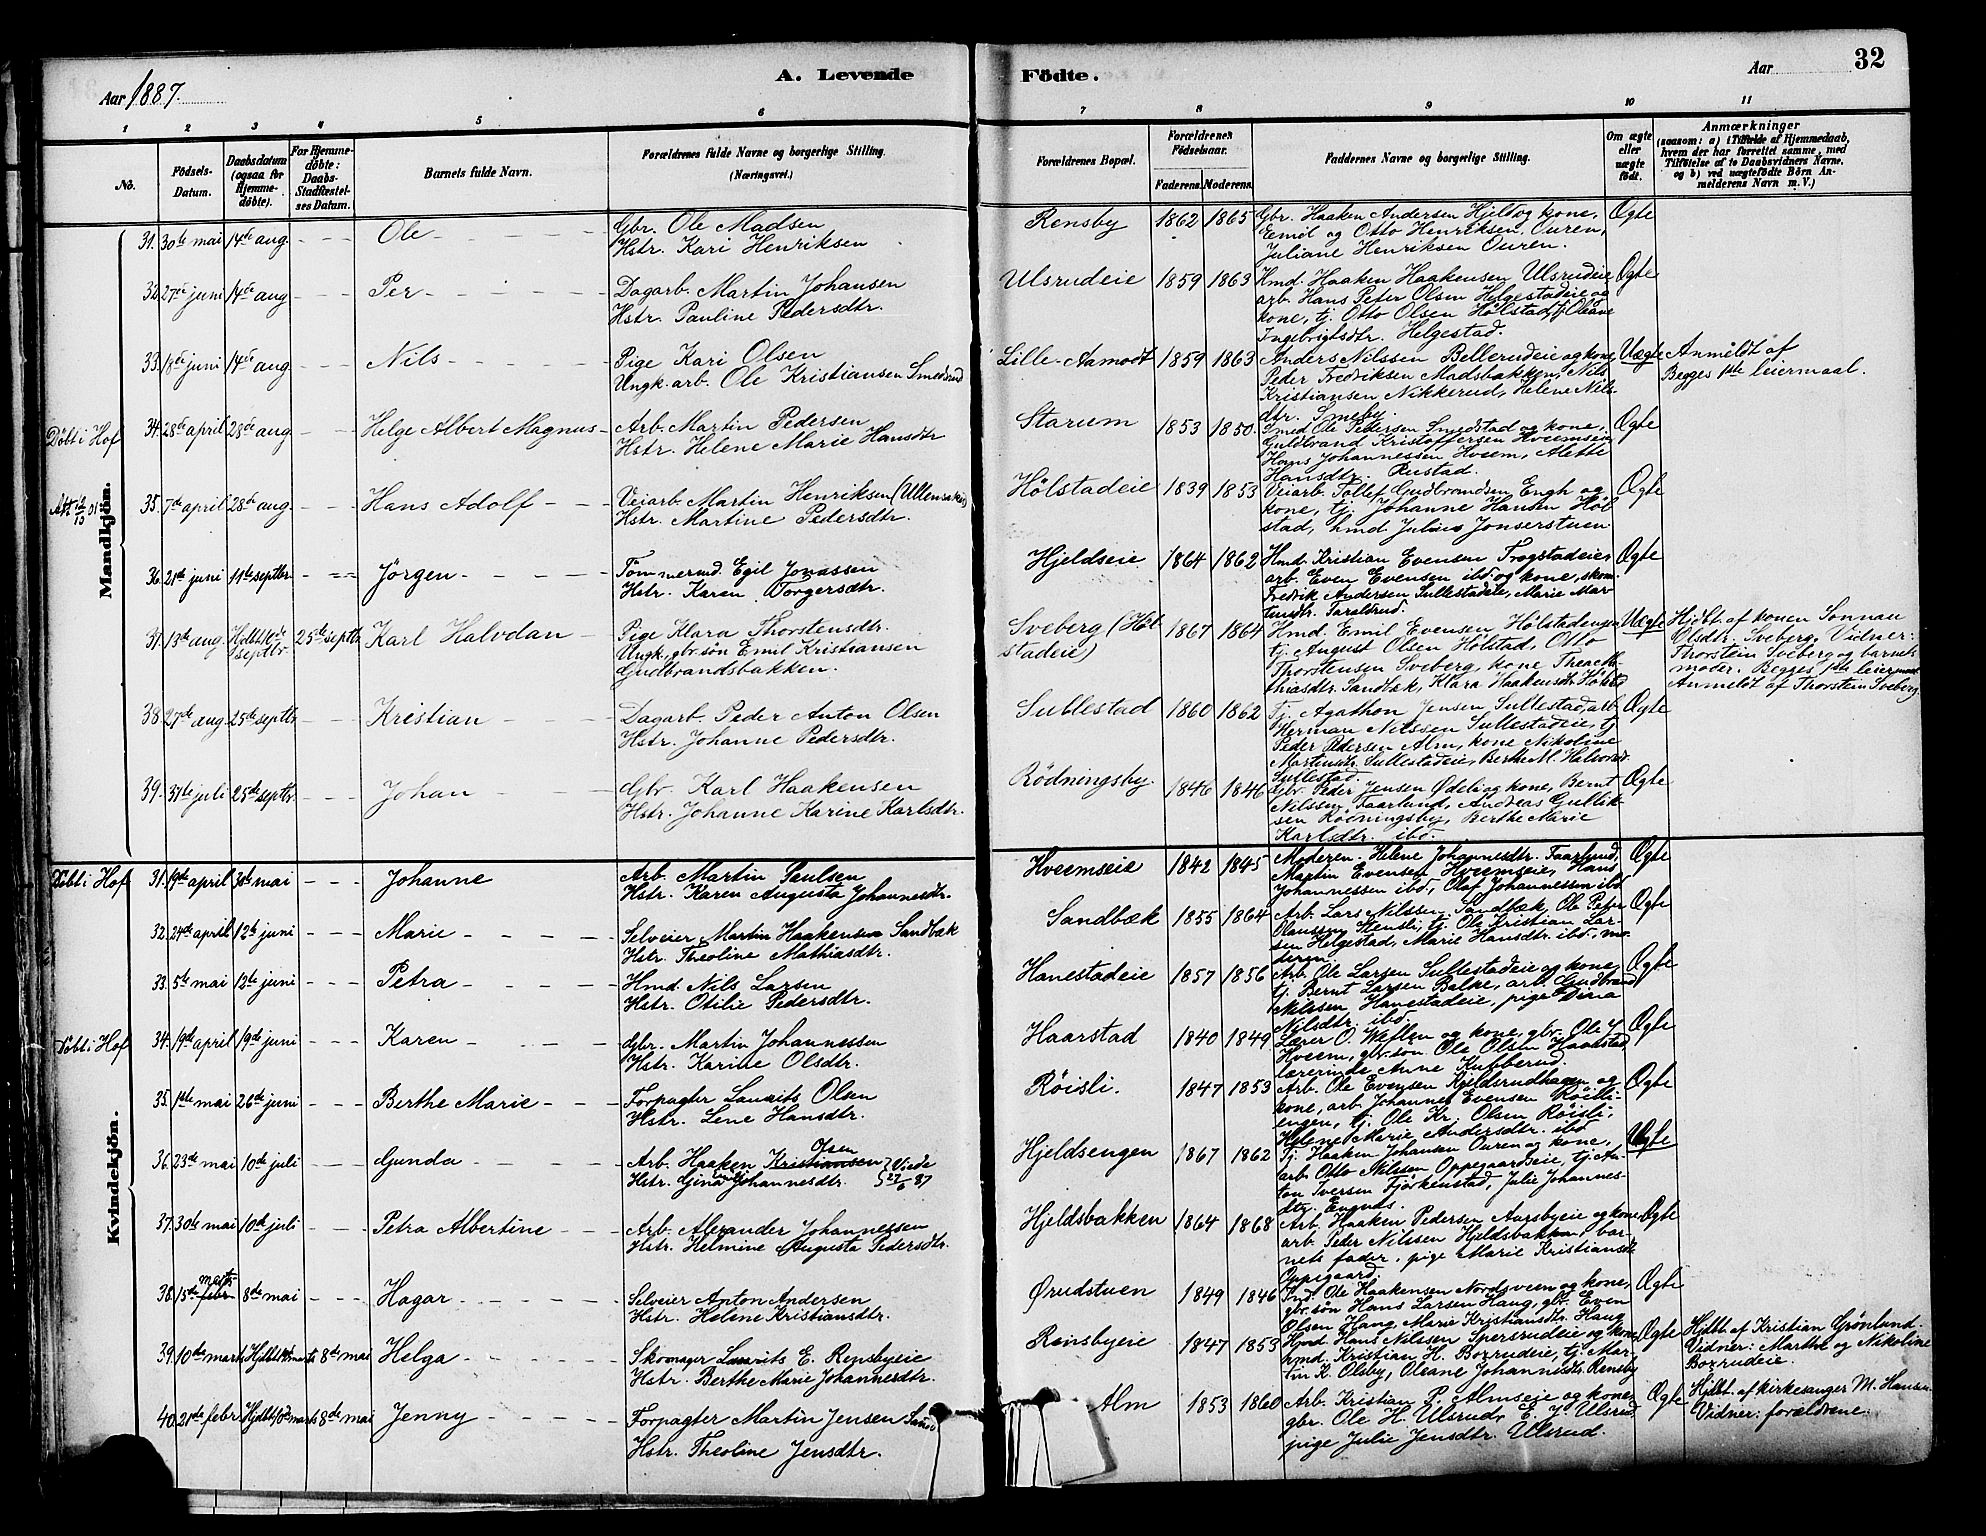 Aar 1887.
A. Levende
Födte.
Aar
32
1 2 3 4 5 6 7 8 9 10 11
No.
Födsels-Datum.
Daabsdatum (ogsaa for Hjemme-döbte).
For Hjemme-döbte: Daabs-Stadfæstelses Datum.
Barnets fulde Navn.
Forældrenes fulde Navne og borgerlige Stilling. (Næringsvei.)
Forældrenes Bopæl.
Forældrenes Födselsaar.
Faderens. Moderens.
Faddernes Navne og borgerlige Stilling.
Om ægte eller uægte födt.
Anmærkninger (saasom: a) i Tilfælde af Hjemmedaab, hvem der har forrettet samme, med Tilföielse af to Daabsvidners Navne, og b) ved uægtefödte Börn Anmelderens Navn m. V.)
Mandkjön.
31. 30te mai 14de aug. Ole
Gbr. Ole Madsen
Hstr. Kari Henriksen
Rensby 1862 1865
Gbr. Haaken Andersen Hjeld og kone,
Emil og Otto Henriksen Ouren,
Juliane Henriksen Ouren.
Ægte
32. 27de juni 14de aug Per
Dagarb. Martin Johansen
Hstr. Pauline Pedersdtr.
Ulsrudeie 1859 1863
Hmd. Haaken Haakensen Ulsrudeie
arb. Hans Peter Olsen Helgestadeie og
kone, tj. Otto Olsen Hölstad, tj. Oleane
Ingebrigtsdtr. Helgestad.
Ægte
33. 18de juni 14de aug Nils
Pige Kari Olsen
Ungk. arb. Ole Kristiansen Smedsrud
Lille-Aamodt 1859 1863
Anders Nilssen Bellerudeie og kone,
Peder Fredriksen Madsbakken, Nils
Kristiansen Nikkerud, Helene Nils-
dtr. Smeby.
Uægte
Anmeldt af
Begges 1ste leiermaal.
Döbt i Hof
34. 28de april 28de aug Helge Albert Magnus
Arb. Martin Pedersen
Hstr. Helene Marie Hansdtr
Starum 1853 1850.
Smed Ole Pedersen Smedstad og kone,
Guldbrand Kristoffersen Hveemseie
Hans Johannessen Hveem, Alette
Hansdtr. Rustad.
Ægte
35. 7de april 28de aug Hans Adolf
Veiarb. Martin Henriksen (Ullensaker)
Hstr. Martine Pedersdtr.
Hölstadeie 1839 1853
Veiarb. Tollef Gudbrandsen Engh og
kone, tj. Johanne Hansen Höl
stad, hmd Julius Jonserstuen
Ægte
36. 21de juni 11te septbr. Jörgen
Tömmermd. Egil Jonassen
Hstr. Karen Torgersdtr.
Hjeldseie 1864 1862
Hmd. Kristian Evensen Trogstadeie,
arb. Even Evensen ibd. og kone, skom.
Fredrik Andersen Sullestadeie, Marie Mar-
tinsdtr. Taralsrud.
Ægte
37. 13de aug. Hjdbt 10de septbr. 25de septbr. Karl Halvdan
Pige Klara Thorstensdtr.
Ungk. gbr. sön Emil Kristiansen
Gudbrandsbakken.
Sveberg (Höl
stadeie) 1867 1864
Hmd. Emil Evensen Hölstadengen
tj. August Olsen Hölstad, Otto
Thorstensen Sveberg, kone Thea Mat-
thiasdtr. Sandbæk, Klara Haakensdtr. Hölstad
Uægte
Hjdbt. af konen Sonnau
Olsdtr. Sveberg. Vidner:
Thorstein Sveberg og barnets
moder. Begges 1ste leiermaal
Anmeldt af Thorstein Sveberg.
38. 27de aug. 25de septbr Kristian
Dagarb. Peder Anton Olsen
Hstr. Johanne Pedersdtr.
Sullestad 1860 1862
Tj. Agathon Jensen Sullestad, arb.
Herman Nilssen Sullestadeie, tj
Peder Pedersen Alm, kone Nikoline
Martinsdtr. Sullestadeie, Berthe M. Halvorsd.
Sullestad.
Ægte
39. 31te juli 25de septbr. Johan
Gbr. Karl Haakensen
Hstr. Johanne Karine Karlsdtr.
Rödningsby. 1846 1846
Gbr. Peder Jensen Ödeli og kone, Bernt
Nilssen Faarlund, Andreas Gullik-
sen Rödningsby, Berthe Marie
Karlsdtr. ibd.
Ægte
Kvindekjön.
Döbt i Hof
31. 19de april 30te mai Johanne
Arb. Martin Paulsen
Hstr. Karen Augusta Johannesdtr.
Hveemseie 1842 1845
Moderen, Helene Johannesdtr. Faarlund,
Martin Evensen Hveemseie, Hans
Johannessen ibd, Olaf Johannessen ibd
Ægte
32. 24de april 12te juni Marie
Selveier Martin Haakensen Sandbæk
Hstr. Theoline Mathiasdtr.
Sandbæk 1855 1864
Arb. Lars Nilssen Sandbæk, Ole Peter
Olaussen Stensli, tj. Ole Kristian Lar-
sen Helgestad, Marie Hansdtr. ibd., mo-
deren.
Ægte
33. 5te mai 12te juni Petra
Hmd. Nils Larsen
Hstr. Otilie Pedersdtr.
Hanestadeie 1857 1856
Arb. Ole Larsen Sullestadeie og kone,
tj. Bernt Larsen Balke, arb. Gudbrand
Nilssen Hanestadeie, pige Dina
Nilsdtr. ibd.
Ægte
Döbt i Hof
34. 19de april 19de juni Karen
Gbr. Martin Johannessen
Hstr. Karine Olsdtr.
Haarstad 1840 1849
Lærer O. Weflen og kone, gbr. Ole J.
Hveem, gbr. sön Ole Olsen Haarstad,
lærerinde Anne Kufberud.
Ægte
35. 1ste mai 26de juni Berthe Marie
Forpagter Laurits Olsen
Hstr. Lene Hansdtr.
Röisli. 1847 1853
Arb. Ole Evensen Kjeldsrudhagen og
kone, arb. Johannes Evensen Röisli-
engen, tj. Ole Kr. Olsen Röisli,
Helene Marie Andersdtr. ibd
Ægte
36. 23de mai 10de juli Gunda
Arb. Haaken Kristiansen Olsen
Hstr. Gina Johannesdtr. Viede 27/6 87
Hjeldsengen 1867 1862
Tj. Haaken Johansen Ouren og kone,
arb. Otto Nilssen Oppegaardseie, tj. An-
ton Iversen Fjörkenstad, Julie Johannes-
dtr. Engnæs.
Ægte
37. 30te mai 10de juli Petra Albertine
Arb. Alexander Johannessen
Hstr. Helmine Augusta Pedersdtr.
Hjeldsbakken 1864 1868
Arb. Haaken Pedersen Aarsbyeie og kone
arb. Peder Nilssen Hjeldsbakken, bar-
nets fader, pige Marie Kristiansdtr.
Oppegaard.
Ægte
38. 15de febr marts 8de mai Hagar
Selveier Anton Andersen
Hstr. Helene Kristiansdtr.
Ørudstuen 1849 1846
Ind. Ole Haakensen Nordsveen og kone,
gbr. sön Hans Larsen Haug, gbr. Even
Olsen Haug, Marie Kristiansdtr. Haug
Ægte
39. 10de marts Hjdbt marts 8de mai Helga
Skomager Laurits E. Rensbyeie
Hstr. Berthe Marie Johannesdtr.
Rensbyeie 1847 1853
Hmd. Hans Nilssen Spersrudeie og kone
hmd. Kristian H. Bozrudeie, tj. Mar-
tin K. Olsby, Oleane Johannesdtr. Rensby
Ægte
Hjdbt. af Kristian Grönland.
Vidner: Marthe og Nikoline
Bozrudeie.
40. 21de febr. Hjdbt 10de marts 8de mai Jenny
Forpagter Martin Jensen
Hstr. Theoline Jensdtr.
Alm 1853 1860
Arb. Kristian P. Almseie og kone,
gbr. Ole H. Ulsrud, E. J. Ulsrud,
pige Julie Jensdtr. Ulsrud.
Ægte
Hjdbt. af kirkesanger M. Hansen.
Vidner: forældrene.